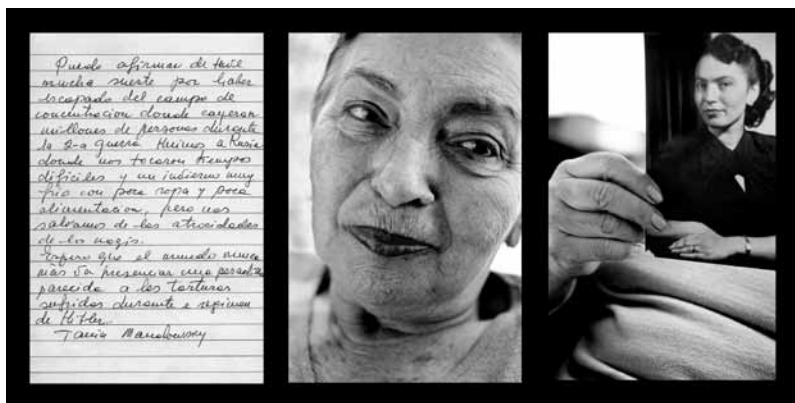 Puedo afirmar de tuve
mucha suerte por haber
escapado del campo de
concentracion donde cayeron
millones de personas durante
la 2-a guerra Huimos a Rusia
donde nos tocaron tiempos
dificiles y un invierno muy
frio con poca ropa y poca
alimentacion, pero nos
salvamos de las atrocidades
de los nazis.
Espero que el mundo nunca
más va presenciar una
parecida a las torturas
sufridas durante e regimen
de Hitler.
Tania